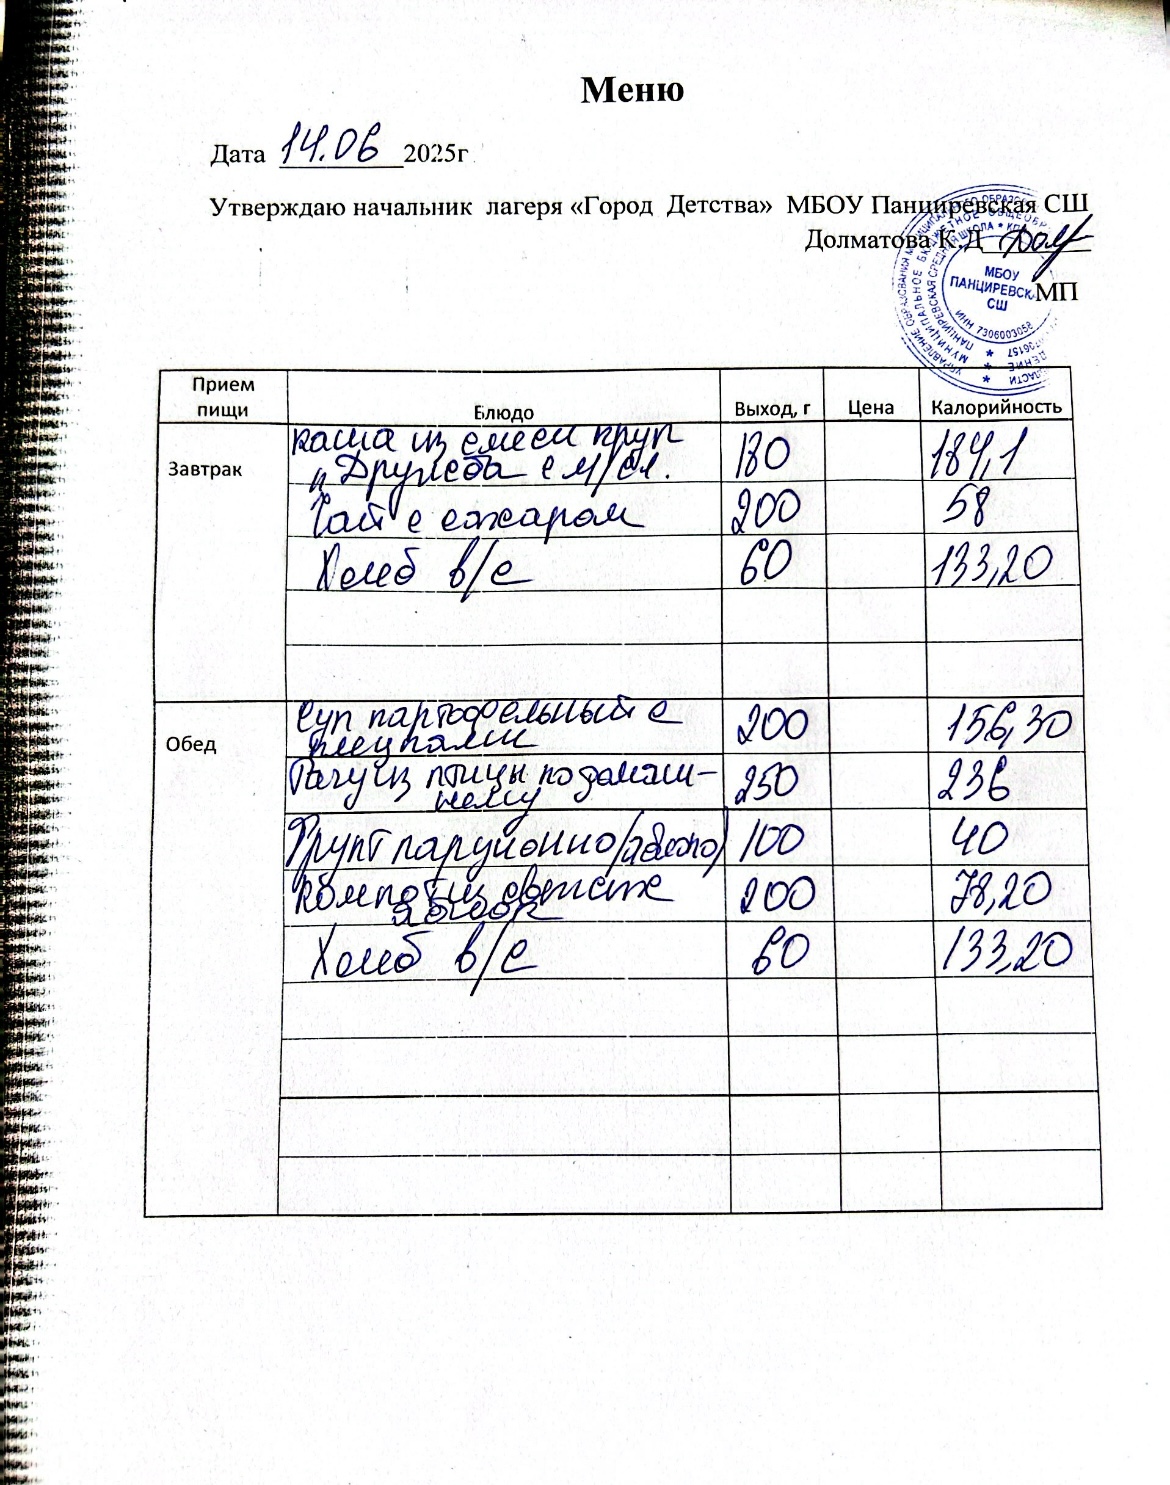 Меню
Дата 14.06 2025г
Утверждаю начальник лагеря «Город Детства» МБОУ Панциревская СШ
Долматова К.Д
МБОУ
ПАНЦИРЕВСК
СШ
ИНН 7306003058
МП
Прием пищи Блюдо Выход, г Цена Калорийность
Завтрак
каша из смеси круп
"Дружба с м/сл. 180 184,1
Чай с сахаром 200 58
Хлеб в/с 60 133,20
Обед
Суп картофельный с
клецками 200 156,30
Рагу из птицы по домаш-
нему 250 236
Фрукт порционно (яблоко) 100 40
Компот из свежих
яблок 200 78,20
Хлеб в/с 60 133,20